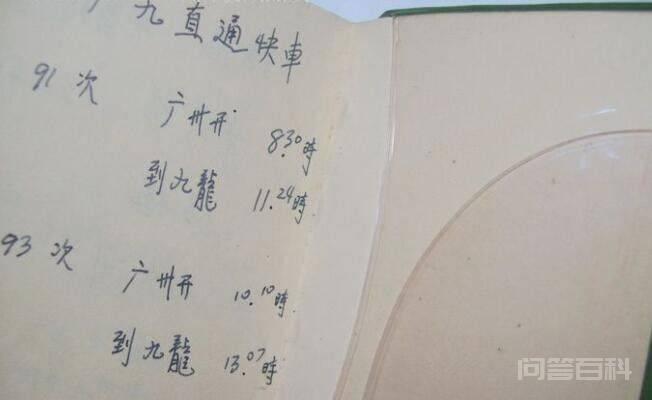 广九直通快車
91次 广州开 8.30時
到九龍 11.24時
93次 广州开 10.10時
到九龍 13.07時
问答百科